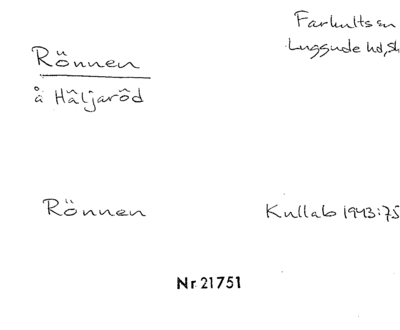 Farhults sn
Luggude hd, Sk
Rönnen
å Häljaröd
Rönnen
Kullab 1943:75
Nr 21751